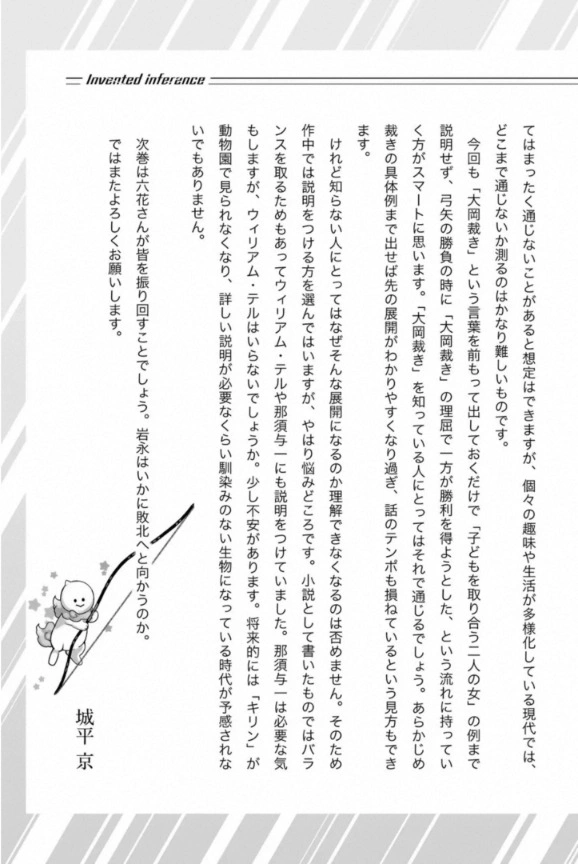 Invented inference
てはまったく通じないことがあると想定はできますが、個々の趣味や生活が多様化している現代では、
どこまで通じないか測るのはかなり難しいものです。
今回も「大岡裁き」という言葉を前もって出しておくだけで「子どもを取り合う二人の女」の例まで
説明せず、弓矢の勝負の時に「大岡裁き」の理屈で一方が勝利を得ようとした、という流れに持ってい
く方がスマートに思います。「大岡裁き」を知っている人にとってはそれで通じるでしょう。あらかじめ
裁きの具体例まで出せば先の展開がわかりやすくなり過ぎ、話のテンポも損ねているという見方もでき
ます。
けれど知らない人にとってはなぜそんな展開になるのか理解できなくなるのは否めません。そのため
作中では説明をつける方を選んではいますが、やはり悩みどころです。小説として書いたものではバラ
ンスを取るためもあってウィリアム・テルや那須与一にも説明をつけていました。那須与一は必要な気
もしますが、ウィリアム・テルはいらないでしょうか。少し不安があります。将来的には「キリン」が
動物園で見られなくなり、詳しい説明が必要なくらい馴染みのない生物になっている時代が予感されな
いでもありません。
次巻は六花さんが皆を振り回すことでしょう。岩永はいかに敗北へと向かうのか。
ではまたよろしくお願いします。
城平 京